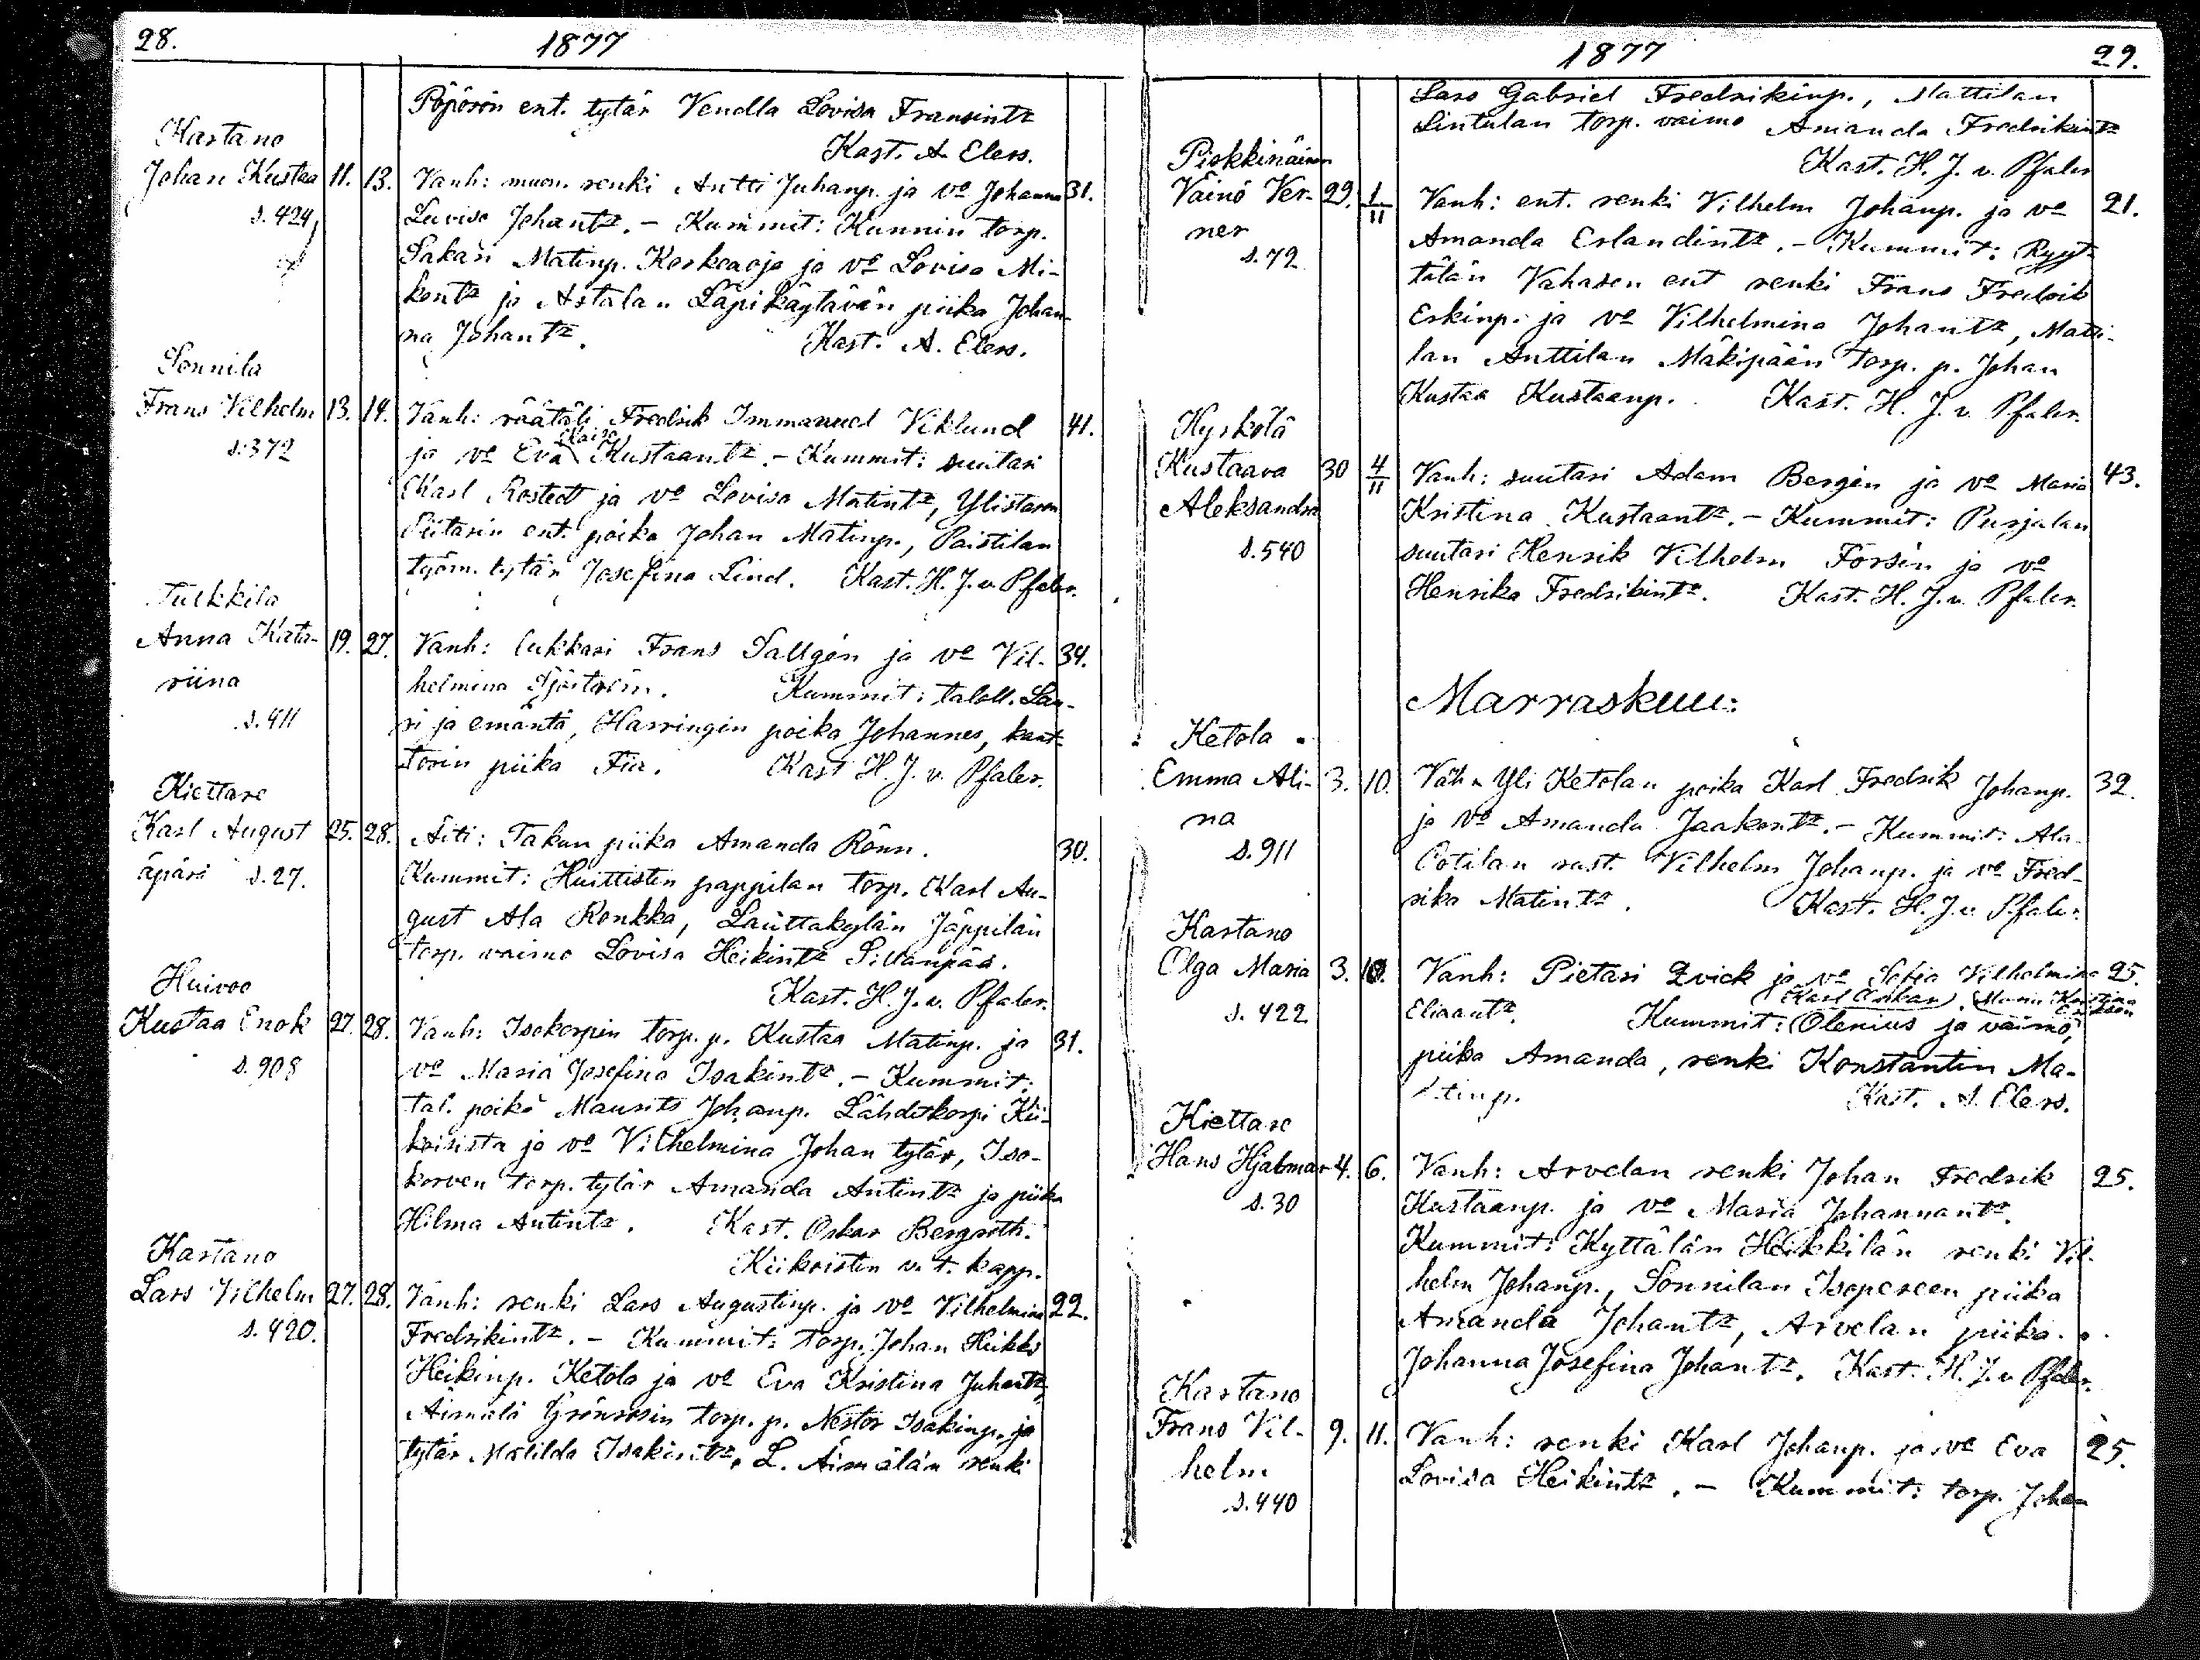 28.
1877
Pöpörön ent. tytär Vendla Lovisa Fransintr
Kast. A. Elers.
Kastano
Johan Kustaa 11. 13. Vanh: muon. renki Antti Juhanp. ja vo Johanna 31.
s. 424, Luvisa Johantr. - Kummit: Kunnin torp.
Sakari Matinp. Koskeaoja ja vo Lovisa Mi-
kontr ja Astalan Läpikäytävän piika Johan-
na Johantr. Kast. A. Elers.
Sonnila
Frans Vilhelm 13. 14. Vanh: räätäli Fredrik Immanuel Viklund 41.
s. 372 ja vo Eva Kaisa Kustaantr. - Kummit: suutari
Karl Rostedt ja vo Lovisa Matintr, Ylistaron
Piitarin ent. poika Johan Matinp., Paistilan
työm. tytär Josefina Lind. Kast. H. J. v. Pfaler.
Tulkkila
Anna Kata- 19. 27. Vanh: lukkari Frans Sallgén ja vo Vil- 34.
riina helmina Sjöström. Kummit: taloll. Lau-
s. 411 ri ja emäntä, Harringin poika Johannes, kant-
torin piika Fia. Kast H. J. v. Pfaler.
Kiettare
Karl August 25. 28. Äiti: Takun piika Amanda Rönn. 30.
äpärä s. 27. Kummit: Huittisten pappilan torp. Karl Au-
gust Ala Ronkka, Lauttakylän Jäppilän
torp. vaimo Lovisa Heikintr Sillanpää.
Kast. H. J. v. Pfaler.
Huivoo
Kustaa Enok 27. 28. Vanh: Isokorpin torp. p. Kustaa Matinp. ja 31.
s. 908 vo Maria Josefina Isakintr. - Kummit:
tal. poika Maurits Johanp. Lähdekorpi Kii-
koisista ja vo Vilhelmina Johan tytär, Iso-
korven torp. tytär Amanda Antintr ja piika
Hilma Antintr. Kast. Oskar Bergroth.
Kiikoisten v. t. kapp.
Kastano
Lars Vilhelm 27. 28. Vanh: renki Lars Augustinp. ja vo Vilhelmina 22.
s. 420. Fredrikintr. - Kummit: torp. Johan Heikki
Heikinp. Ketola ja vo Eva Kristina Juhantr,
Äimälä Grönroosin torp. p. Nestor Isakinp. ja
tytär Matilda Isakintr, L. Äimälän renki
1877
29.
Lars Gabriel Fredrikinp., Mattilan
Lintulan torp. vaimo Amanda Fredrikintr
Kast. H. J. v. Pfaler
Piokkinäinen
Väinö Ver- 29. 1/11 Vanh: ent. renki Vilhelm Johanp. ja vo 21.
ner Amanda Erlandintr. - Kummit: Ryyt-
s. 72 tälän Vahasen ent renki Frans Fredrik
Erkinp. ja vo Vilhelmina Johantr, Matti-
lan Anttilan Mäkipään torp. p. Johan
Kustaa Kustaanp. Kast. H. J. v. Pfaler.
Kyrkölä
Kustaava 30 4/11 Vanh: suutari Adam Bergén ja vo Maria 43.
Aleksandra Kristina Kustaantr. - Kummit: Purjalan
s. 540 suutari Henrik Vilhelm Forsén ja vo
Henrika Fredrikintr. Kast. H. J. v. Pfaler.
Marraskuu:
Ketola
Emma Ali- 3. 10. Väh n Yli Ketolan poika Karl Fredrik Johanp. 32.
na ja vo Amanda Jaakontr. - Kummit: Ala-
s. 911 Ootilan rust. Vilhelm Johanp. ja vo Fred-
rika Matintr. Kast. H. J. v. Pfaler.
Kastano
Olga Maria 3. 10. Vanh: Pietari Qvick ja vo Sofia Vilhelmina 25.
Karl Oskar Maria Kristina Erikson
s. 422 Eliaantr. Kummit: Olenius ja vaimo,
piika Amanda, renki Konstantin Ma-
tinp. Kast. A. Elers.
Kiettare
Hans Hjalmar 4. 6. Vanh: Arvelan renki Johan Fredrik 25.
s. 30 Kustaanp. ja vo Maria Johannantr.
Kummit: Kyttälän Heikkilän renki Vil-
helm Johanp., Sonnilan Isopereen piika
Amanda Johantr, Arvelan piika
Johanna Josefina Johantr. Kast. H. J. v. Pfaler.
Kastano
Frans Vil- 9. 11. Vanh: renki Karl Johanp. ja vo Eva 25.
helm Lovisa Heikintr. - Kummit: torp. Johan
s. 440